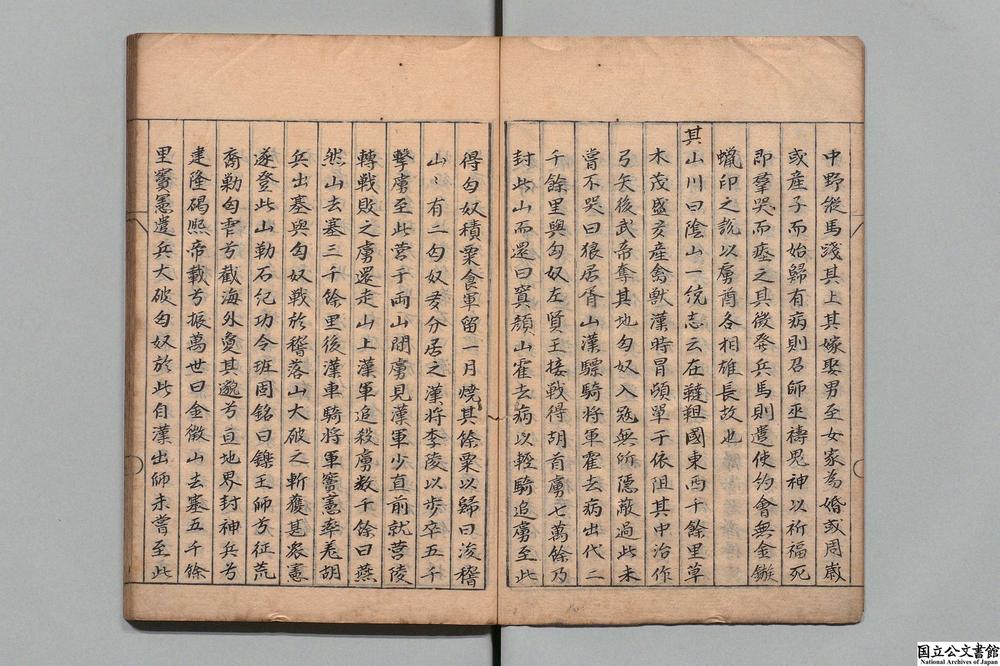 中野縱馬踐其上其嫁娶男至女家為婚或周歲
或產子而始歸有病則召師巫禱鬼神以祈福死
即羣哭而瘞之其徵發兵馬則遣使約會無金鏃
蠟印之説以虜酋各相雄長故也
其山川曰陰山一統志云在韃靼國東西千餘里草
木茂盛多產禽獸漢時冒頓單于依阻其中治作
弓矢後武帝奪其地匈奴入冦無所隱蔽過此未
嘗不哭曰狼居胥山漢驃騎將軍霍去病出代二
千餘里與匈奴左賢王接戰得胡首虜七萬餘乃
封此山而還曰窴顔山霍去病以輕騎追虜至此
得匈奴積粟食軍留一月燒其餘粟以歸曰浚稽
山山有二匈奴麦分居之漢將李陵以步卒五千
擊虜至此营于両山間虜見漢軍少直前就营陵
轉戰敗之虜還走山上漢軍追殺虜数千餘曰燕
然山去塞三千餘里後漢車騎將軍竇憲率羌胡
兵出塞與匈奴戰於稽落山大破之斬獲甚衆憲
遂登此山勒石紀功令班固銘曰鑠王師兮征荒
裔勦匈雽兮截海外夐其邈兮亘地界封神兵兮
建隆碣熈帝載兮振萬世曰金微山去塞五千餘
里竇憲遣兵大破匈奴於此自漢出師未嘗至此
国立公文書館
National Archives of Japan